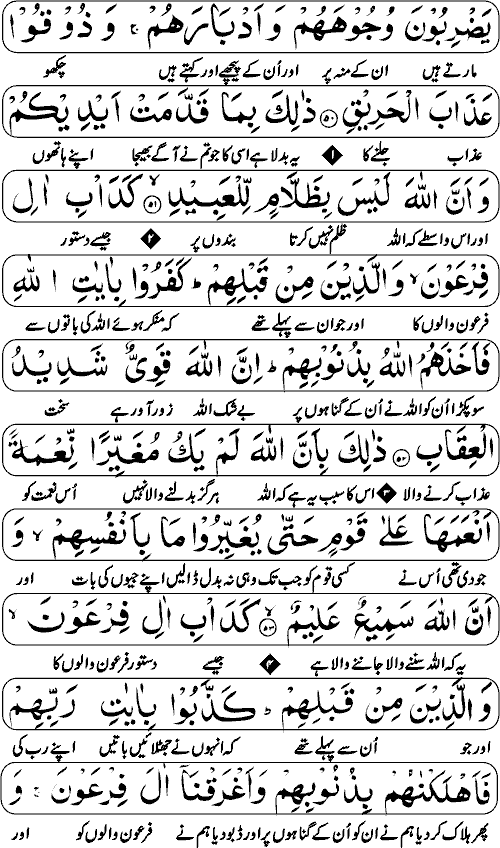 يَضْرِبُوْنَ وُجُوْهَهُمْ وَ اَدْبَارَهُمْ ۚ وَ ذُوْقُوْا
مارتے ہیں ان کے منہ پر اور اُن کے پیچھے اور کہتے ہیں چکھو
عَذَابَ الْحَرِيْقِ ﴿۵۰﴾ ذٰلِكَ بِمَا قَدَّمَتْ اَيْدِيْكُمْ
عذاب جلنے کا ۱ یہ بدلا ہے اسی کا جو تم نے آگے بھیجا اپنے ہاتھوں
وَ اَنَّ اللّٰهَ لَيْسَ بِظَلَّامٍ لِّلْعَبِيْدِ ﴿۵۱﴾ۙ كَدَاْبِ اٰلِ
اور اس واسطے کہ اللہ ظلم نہیں کرتا بندوں پر ۲ جیسے دستور
فِرْعَوْنَ ۙ وَ الَّذِيْنَ مِنْ قَبْلِهِمْ ؕ كَفَرُوْا بِاٰيٰتِ اللّٰهِ
فرعون والوں کا اور جو ان سے پہلے تھے کہ منکر ہوئے اللہ کی باتوں سے
فَاَخَذَهُمُ اللّٰهُ بِذُنُوْبِهِمْ ؕ اِنَّ اللّٰهَ قَوِيٌّ شَدِيْدُ
سو پکڑا اُن کو اللہ نے اُن کے گناہوں پر بے شک اللہ زور آور ہے سخت
الْعِقَابِ ﴿۵۲﴾ ذٰلِكَ بِاَنَّ اللّٰهَ لَمْ يَكُ مُغَيِّرًا نِّعْمَةً
عذاب کرنے والا ۳ اس کا سبب یہ ہے کہ اللہ ہرگز بدلنے والا نہیں اُس نعمت کو
اَنْعَمَهَا عَلٰى قَوْمٍ حَتّٰى يُغَيِّرُوْا مَا بِاَنْفُسِهِمْ ۙ وَ
جو دی تھی اُس نے کسی قوم کو جب تک وہی نہ بدل ڈالیں اپنے جیوں کی بات اور
اَنَّ اللّٰهَ سَمِيْعٌ عَلِيْمٌ ﴿۵۳﴾ۙ كَدَاْبِ اٰلِ فِرْعَوْنَ ۙ
یہ کہ اللہ سننے والا جاننے والا ہے ۴ جیسے دستور فرعون والوں کا
وَ الَّذِيْنَ مِنْ قَبْلِهِمْ ؕ كَذَّبُوْا بِاٰيٰتِ رَبِّهِمْ
اور جو اُن سے پہلے تھے کہ انہوں نے جھٹلائیں باتیں اپنے رب کی
فَاَهْلَكْنٰهُمْ بِذُنُوْبِهِمْ وَ اَغْرَقْنَاۤ اٰلَ فِرْعَوْنَ ۚ وَ
پھر ہلاک کر دیا ہم نے ان کو اُن کے گناہوں پر اور ڈبو دیا ہم نے فرعون والوں کو اور